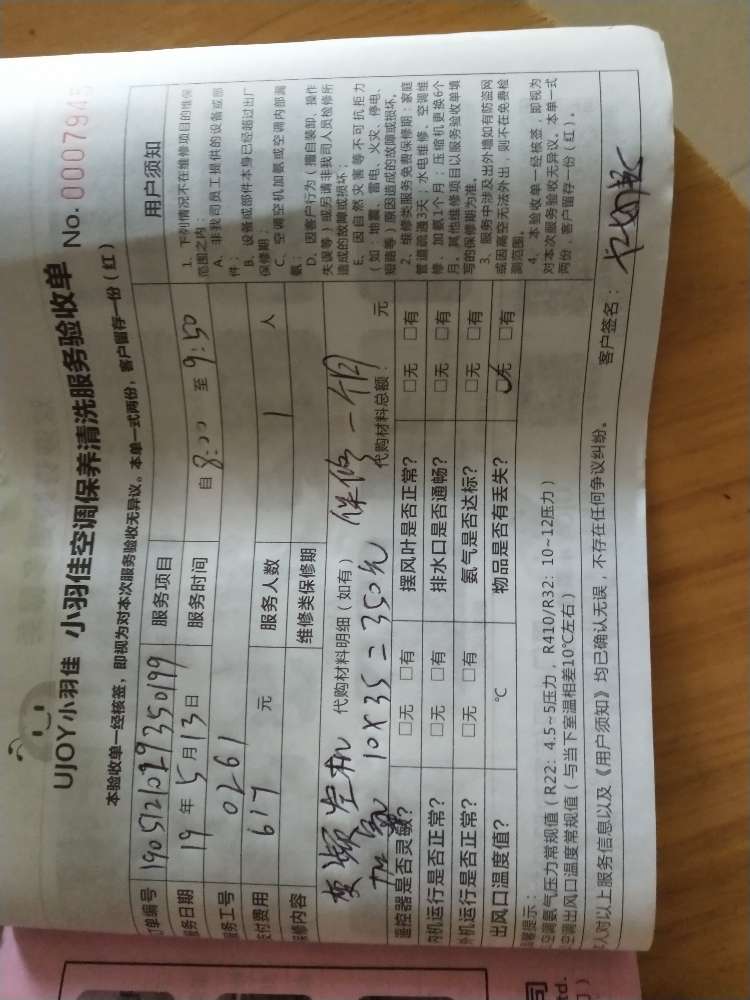 UJOY小羽佳 小羽佳空调保养清洗服务验收单 No. 0007945
本验收单一经核签，即视为对本次服务验收无异议。本单一式两份，客户留存一份（红）
订单编号 190512102935019 服务项目
服务日期 19 年 5 月 13 日 服务时间 自 8:00 至 9:50
服务工号 0261
支付费用 617 元 服务人数 1 人
保修内容 维修类保修期
变频空机 代购材料明细（如有） 保修一个月
加氟 10X35=350元 代购材料总额： 元
遥控器是否灵敏？ □无 □有 摆风叶是否正常？ □无 □有
内机运行是否正常？ □无 □有 排水口是否通畅？ □无 □有
外机运行是否正常？ □无 □有 氨气是否达标？ □无 □有
出风口温度值？ ℃ 物品是否有丢失？ ☑无 □有
温馨提示：
空调氨气压力常规值（R22：4.5~5压力，R410/R32：10~12压力）
空调出风口温度常规值（与当下室温相差10℃左右）
本人对以上服务信息以及《用户须知》均已确认无误，不存在任何争议纠纷。 客户签名：
用户须知
1、下列情况不在维修项目的维保
范围之内：
A、非我司员工提供的设备或部
件；
B、设备或部件本身已经超过出厂
保修期；
C、空调空机加氨或空调内部漏
氨；
D、因客户行为（擅自装卸、操作
失误等）或另请非我司人员检修所
造成的故障或损坏；
E、因自然灾害等不可抗拒力
（如：地震、雷电、火灾、停电、
短路等）原因造成的故障或损坏。
2、维修类服务免费保修期：家庭
管道疏通3天；水电维修、空调维
修、加氨1个月；压缩机更换6个
月。其他维修项目以服务验收单填
写的保修期为准。
3、服务中涉及出外墙如有防盗网
或因高空无法外出，则不在免费检
测范围。
4、本验收单一经核签，即视为
对本次服务验收无异议。本单一式
两份，客户留存一份（红）。
司
td.